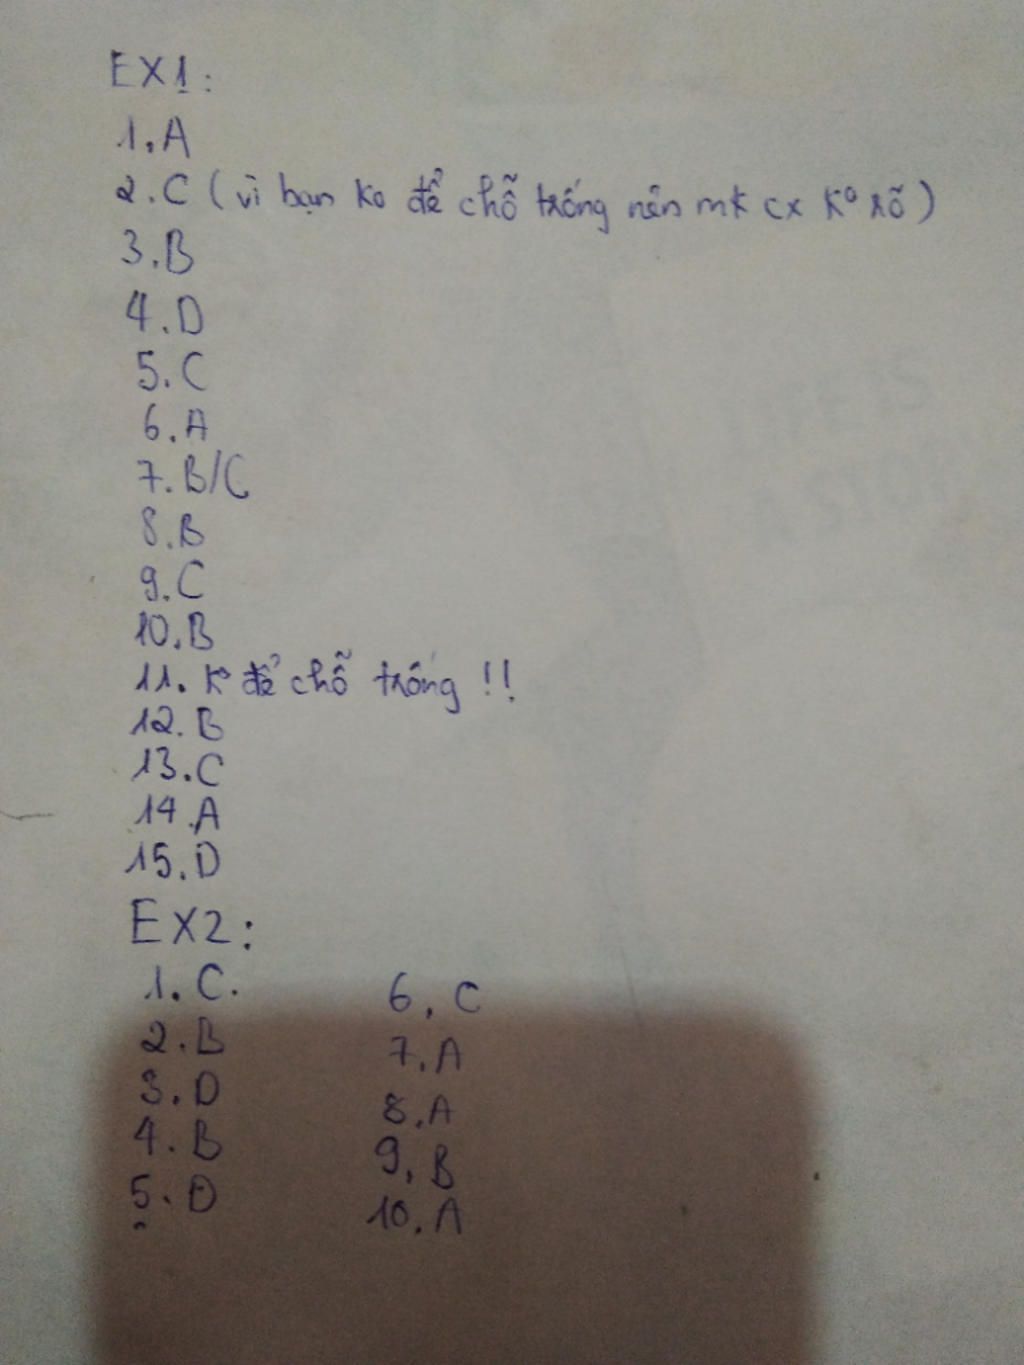 EX1:
1. A
2. C (vì bạn ko để chỗ trống nên mk cx ko rõ)
3. B
4. D
5. C
6. A
7. B/C
8. B
9. C
10. B
11. ko để chỗ trống !!
12. B
13. C
14. A
15. D
EX2:
1. C.
2. B
3. D
4. B
5. D
6. C
7. A
8. A
9. B
10. A